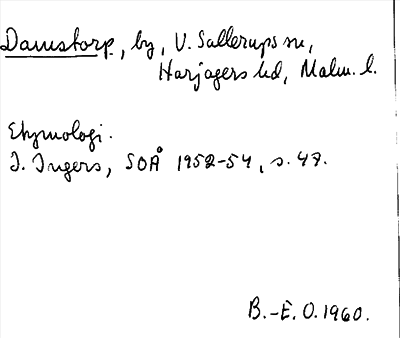 Damstorp, by, V. Sallerups sn,
Harjagers hd, Malm. l.
Etymologi.
I. Ingers, SOÅ 1952-54, s. 47.
B.-E. O. 1960.